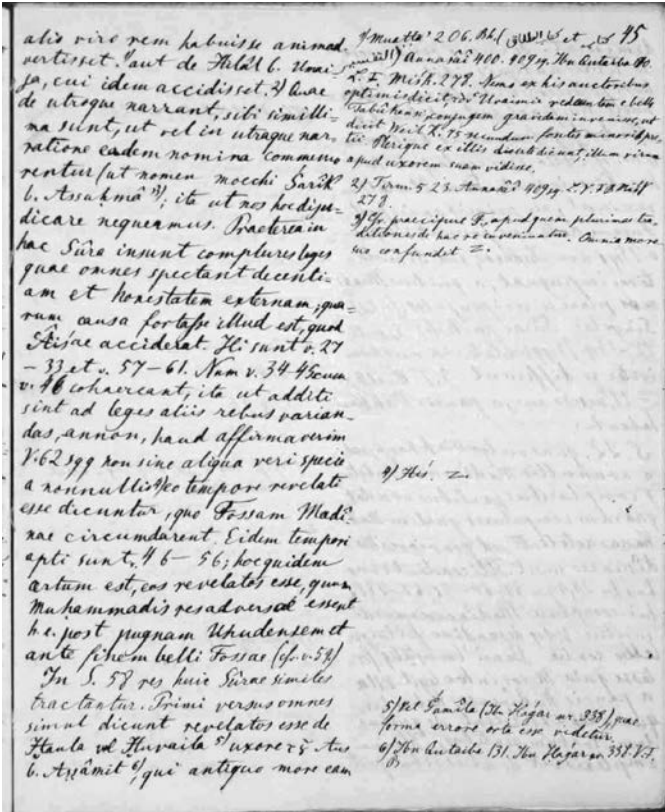 45
alio viro rem habuisse animad-
vertisset. 1) aut de Hilâl b. Umai-
ja, cui idem accidisset. 2) Quae
de utroque narrant, sibi simillima
sunt, ut vel in utraque nar-
ratione eadem nomina commemo
rentur (ut nomen moechi Šarîk
b. Assahmâ 3)); ita ut nos hoc diju-
dicare nequeamus. Praeterea in
hac Sûra insunt complures leges
quae omnes spectant decenti-
am et honestatem externam, qua-
rum causa fortasse illud est, quod
Âïšae acciderat. Hi sunt v. 27
– 33 et v. 57 – 61. Num v. 34 45 cum
v. 46 cohaereant, ita ut additi
sint ad leges aliis rebus varian-
das, annon, haud affirmaverim
V. 62 sqq non sine aliqua veri specie
a nonnullis 4) eo tempore revelati
esse dicuntur, quo Fossam Madî-
nae circumdarent. Eidem tempori
apti sunt v. 46 – 56; hoc quidem
certum est, eos revelatos esse, quum
Muhammadis res adversae essent
h. e. post pugnam Uhudensem et
ante finem belli Fossae (cfr. v. 52)
In S. 58 res huic Sûrae similes
tractantur. Primi versus omnes
simul dicunt revelatos esse de
Haula vel Huvaila 5) uxore Aus
b. Aṣṣâmit 6), qui antiquo more eam
1) Muatta' 206. Bh. ( كتاب الطلاق et كتاب
التفسير) Annasâî 400. 409 sq. Ibn Qutaiba
F. Mišk. 278. Nemo ex his auctoribus
optimis dicit, Uvaimir redeuntem e bello
Tabûkeno, conjugem gravidam invenisse, ut
dicit Weil secundum fontes minoris pre-
tii. Plerique ex illis dicunt illum virum
apud uxorem suam vidisse.
2) Tirm. 523. Annasâî 409 sq.
278.
3) Cfr. praecipue F, apud quem plurimae tra-
ditiones de hac re inveniuntur. Omnia more
suo confundit
4) Hiš.
5) Vel Ǵamîla (Ibn Ḥaǵar nr. 338), quae
forma errore orta esse videtur.
6) Ibn Qutaiba 131. Ibn Ḥaǵar nr. 338.